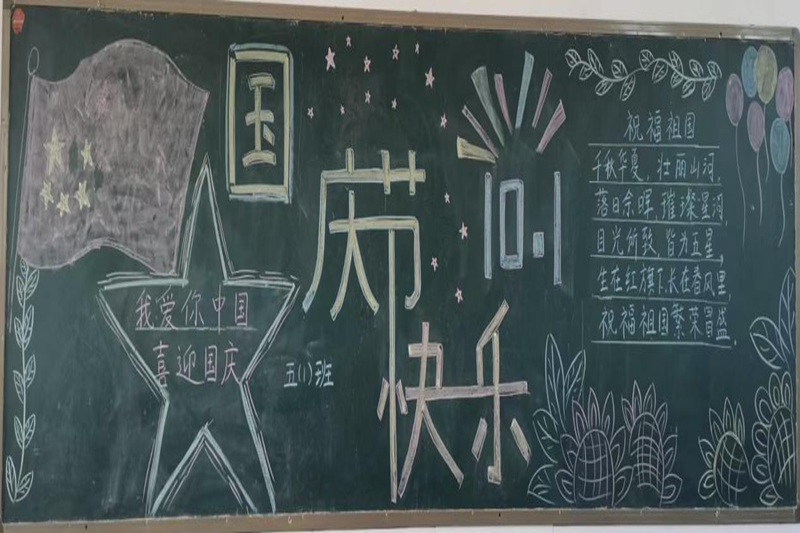 国庆节快乐
10.1
我爱你中国
喜迎国庆
五(1)班
祝福祖国
千秋华夏,壮丽山河,
落日余晖,璀璨星河
目光所致,皆为五星,
生在红旗下,长在春风里,
祝福祖国繁荣昌盛